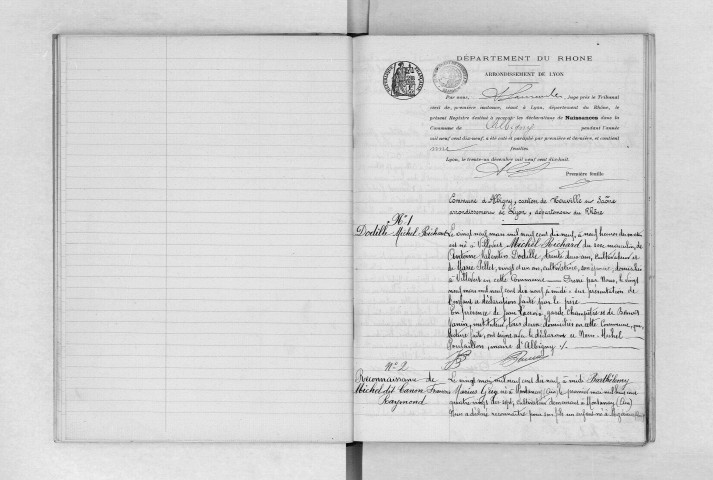 DÉPARTEMENT DU RHONE
ARRONDISSEMENT DE LYON
Par nous, Juge près le Tribunal
civil de première instance, séant à Lyon, département du Rhône, le
présent Registre destiné à recevoir les déclarations de Naissances dans la
Commune de Albigny pendant l'année
mil neuf cent dix-neuf, a été coté et paraphé par première et dernière, et contient
feuilles.
Lyon, le trente-un décembre mil neuf cent dix-huit.
Première feuille
Commune d'Albigny, canton de Neuville sur Saône
arrondissement de Lyon, département du Rhône
N° 1
Dodille Michel Richard
Le vingt neuf mars mil neuf cent dix neuf, à neuf heures du matin
est né à Villevert Michel Richard du sexe masculin, de
Antoine Valentin Dodille, trente deux ans, cultivateur et de
Marie Pellet, vingt un ans, cultivatrice, son épouse, domiciliés
à Villevert en cette Commune — Dressé par Nous, le vingt
neuf mars mil neuf cent dix neuf à midi sur présentation de
l'enfant et déclaration faite par le père
En présence de garde champêtre et de Benoit
Janin, instituteur, tous deux domiciliés en cette Commune, qui,
lecture faite, ont signé avec le déclarant et Nous Michel
maire d'Albigny
N° 2
Reconnaissance de
Michel dit Canon Francois
Raymond
Le vingt mai mil neuf cent dix neuf, à midi Barthélemy
Marius né à Montanay (Ain) le premier mai mil huit cent
quatre vingt dix sept, cultivateur demeurant à Montanay (Ain)
Nous a déclaré reconnaître pour son fils un enfant né à